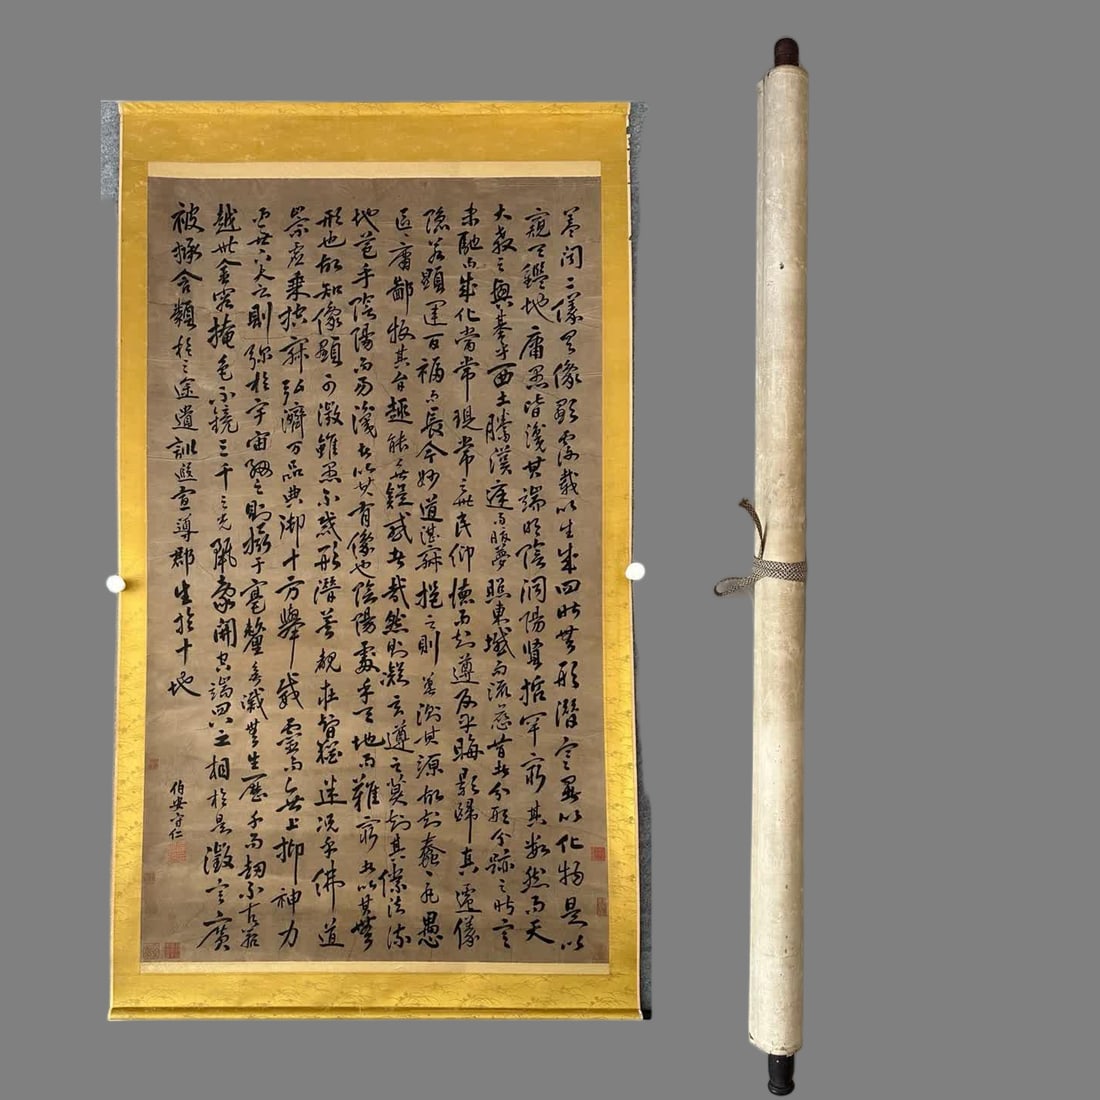 蓋聞二儀有像顯覆載以生成四時無形潛寒暑以化物是以
窺天鑑地庸愚皆識其端明陰洞陽賢哲罕窮其數然而天
大教之興基乎西土騰漢庭而皎夢照東域而流慈昔者分形分跡之時言
未馳而成化當常現常之世民仰德而知遵及乎晦影歸真遷儀
隱若顯運百福而長今妙道湛寂挹之則莫測其源故知蠢蠢凡愚
區區庸鄙投其旨趣能無疑惑者哉然則凝玄遵之莫知其際法流
地苞乎陰陽而易識者以其有像也陰陽處乎天地而難窮者以其無
形也故知像顯可徵雖愚不惑形潛莫覩在智猶迷況乎佛道
崇虛乘控寂弘濟万品典御十方舉威靈而無上抑神力
而無下大之則彌於宇宙細之則攝于毫釐無滅無生歷千而劫不古若
越世金容掩色不鏡三千之光麗象開空端四八之相於是微言廣
被拯含類於三途遺訓遐宣導群生於十地
伯安守仁